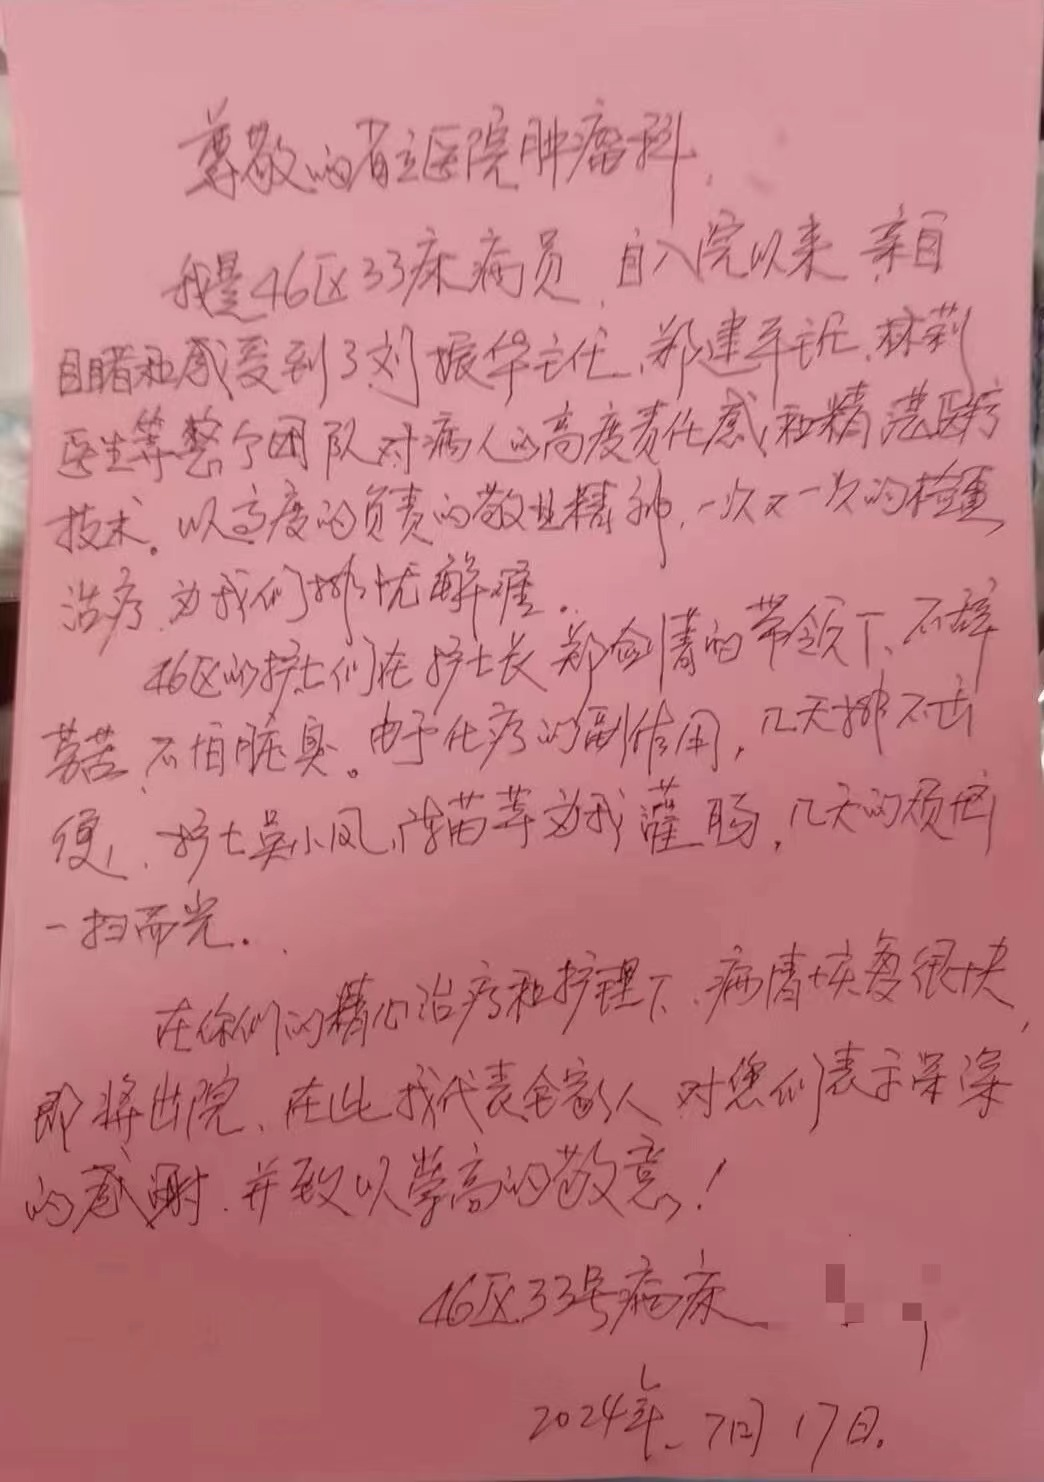 尊敬的省立医院肿瘤科,
我是46区33床病员,自入院以来亲自
目睹和感受到了刘振华主任、郑建平主任、林莉
医生等整个团队对病人的高度责任感和精湛医疗
技术。以高度的负责的敬业精神,一次又一次的检查
治疗,为我们排忧解难。
46区的护士们在护士长郑剑清的带领下、不辞
劳苦,不怕脏臭。由于化疗的副作用,几天排不出
便,护士吴小凤、苗等为我灌肠,几天的烦恼
一扫而光。
在你们的精心治疗和护理下、病情恢复很快,
即将出院、在此我代表全家人对您们表示深深
的感谢,并致以崇高的敬意!
46区33号病床
2024年7月17日.